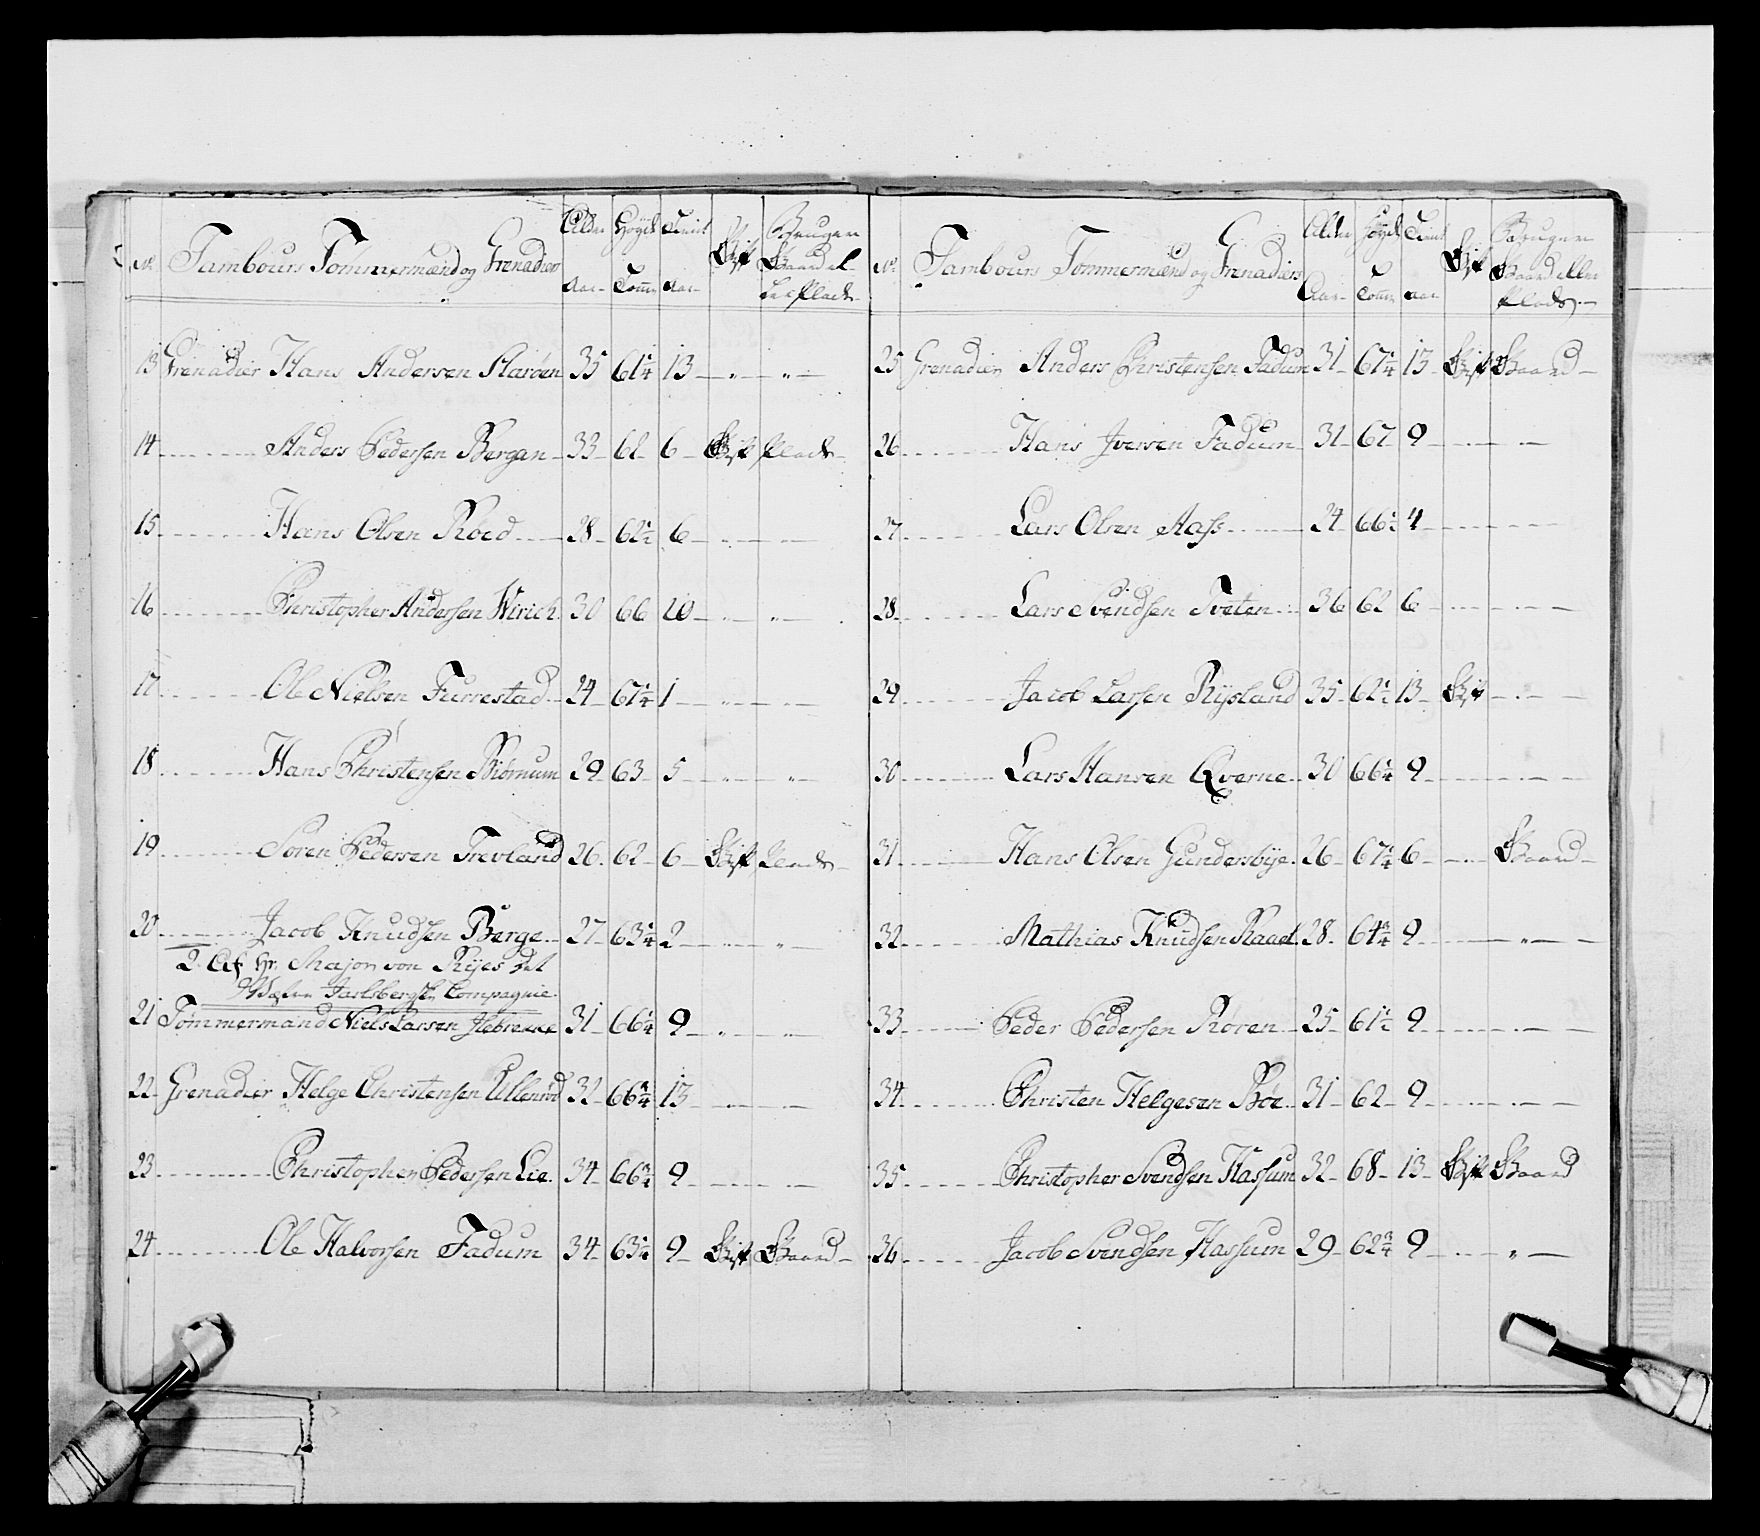 No Tambours Tömmermænd og Grenadier Alder Aar Höyde Tomm Tienst Aar Gift Bruger Gaard el- ler Plads
13 Grenadier Hans Andersen Slaröen 35 61¼ 13 — „ — „ —
14 Anders Pedersen Bergan 33 61 6 Gift Plads
15 Hans Olsen Röed 28 62½ 6
16 Christopher Andersen Wirich 30 66 10 — „ — „ —
17 Ole Nielsen Furrestad 24 67¼ 1
18 Hans Christensen Biörnum 29 63 5
19 Sören Pedersen Trevland 26 62 6 Gift Plads
20 Jacob Knudsen Berge 27 63¼ 2
2. Af Hr. Major von Ryes Det
Jarlsbergske Compagnie
21 Tömmermand Niels Larsen 31 66¼ 9
22 Grenadier Helge Christensen Ulleröd 32 66¾ 13
23 Christopher Pedersen Lie 34 66¾ 9
24 Ole Halvorsen Fadum 34 63¼ 9 Gift Gaard
No Tambours Tömmermænd og Grenadiers Alder Aar Höyde Tomm Tienst Aar Gift Bruger Gaard eller Plads
25 Grenadier Anders Christensen Fadum 31 67¼ 13 Gift Gaard
26 Hans Iversen Fadum 31 67 9
27 Lars Olsen Aass 24 66½ 4
28 Lars Svendsen Tveten 36 62 6
29 Jacob Larsen Rijsland 35 62½ 13 Gift
30 Lars Hansen Qverne 30 66¼ 9
31 Hans Olsen Gundersbye 26 67¼ 6 Gaard
32 Mathias Knudsen Raaet 28 64¾ 9
33 Peder Pedersen Rören 25 61½ 9
34 Christen Helgesen Böe 31 62 9
35 Christopher Svendsen Hassum 32 68 13 Gift Gaard
36 Jacob Svendsen Hassum 29 62¾ 9 — „ —